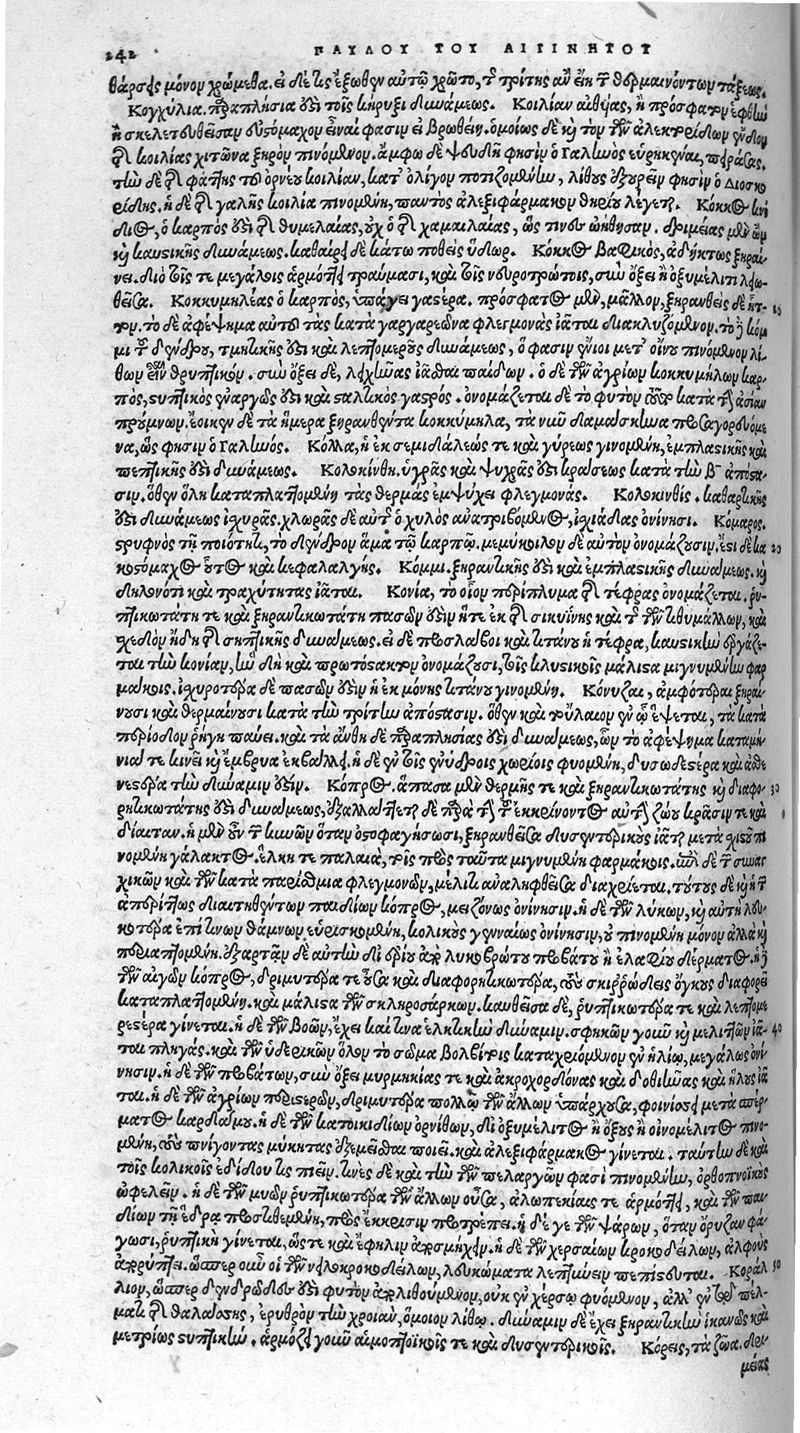 242 ΠΑΥΛΟΥ ΤΟΥ ΑΙΓΙΝΗΤΟΥ
θάρσεως μόνον χρώμεθα. εἰ δέ τις ἔξωθεν αὐτῷ χρῷτο, τῆς τρίτης ἂν εἴη τῶν θερμαινόντων τάξεως.
Κογχύλια. παραπλήσια ἐστὶ τοῖς κήρυξι δυνάμεως. Κοιλίαν αἰθυίας, ἢ πρόσφατον ἑφθὴν
ἢ σκελετευθεῖσαν εὐστόμαχον εἶναί φασιν εἰ βρωθείη. ὁμοίως δὲ καὶ τὸν τῶν ἀλεκτρίδων ἔνδον
τῆς κοιλίας χιτῶνα ξηρὸν πινόμενον. ἄμφω δὲ ψευδῆ φησὶν ὁ Γαληνὸς εὑρηκέναι, πειράσας.
τὴν δὲ τῆς φάτης τοῦ ὀρνέου κοιλίαν, κατ' ὀλίγον ποτιζομένην, λίθους ἐξουρεῖν φησὶν ὁ Διοσκο
ρίδης. ἡ δὲ τῆς γαλῆς κοιλία πινομένη, παντὸς ἀλεξιφάρμακον θηρίου λέγεται. Κόκκος κνί
διος, ὁ καρπὸς ἐστὶ τῆς θυμελαίας, οὐχ ὁ τῆς χαμαιλαίας, ὥς τινες ᾠήθησαν. δριμείας μὲν ὢν
καὶ καυστικῆς δυνάμεως. καθαίρει δὲ κάτω ποθεὶς ὕδωρ. Κόκκος βαφικὸς, ἀδήκτως ξηραί
νει. διὸ τοῖς τε μεγάλοις ἁρμόττει τραύμασι, καὶ τοῖς νευροτρώτοις, σὺν ὄξει ἢ ὀξυμέλιτι λειω
θεῖσα. Κοκκυμηλέας ὁ καρπὸς, ὑπάγει γαστέρα. πρόσφατος μὲν, μᾶλλον, ξηρανθεὶς δὲ ἧτ- 10
τον. τὸ δὲ ἀφέψημα αὐτοῦ τὰς κατὰ γαργαρεῶνα φλεγμονὰς ἰᾶται διακλυζόμενον. τὸ δὲ κόμ
μι τοῦ δένδρου, τμητικῆς ἐστὶ καὶ λεπτομεροῦς δυνάμεως, ὅ φασιν ἔνιοι μετ' οἴνου πινόμενον λί
θων εἶναι θρυπτικόν. σὺν ὄξει δὲ, λειχῆνας ἰᾶσθαι παίδων. ὁ δὲ τῶν ἀγρίων κοκκυμήλων καρ
πὸς, στυπτικὸς ἐναργῶς ἐστὶ καὶ σταλτικὸς γαστρός. ὀνομάζεται δὲ τὸ φυτὸν τοῦτο κατὰ τὴν ἀσίαν
προύμνων. ἔοικεν δὲ τὰ ἥμερα ξηρανθέντα κοκκύμηλα, τὰ νῦν δαμασκηνὰ προσαγορευόμε
να, ὥς φησιν ὁ Γαληνός. Κόλλα, ἡ ἐκ σεμιδάλεώς τε καὶ γύρεως γινομένη, ἐμπλαστικῆς καὶ
πεπτικῆς ἐστὶ δυνάμεως. Κολοκύνθη. ὑγρᾶς καὶ ψυχρᾶς ἐστὶ κράσεως κατὰ τὴν β̄ ἀπόστα
σιν, ὅθεν ὅλη καταπλαττομένη τὰς θερμὰς ἐμψύχει φλεγμονάς. Κολοκινθίς. καθαρτικῆς
ἐστὶ δυνάμεως ἰσχυρᾶς. χλωρᾶς δὲ αὐτῆς ὁ χυλὸς ἀνατριβόμενος, ἰσχιάδας ὀνίνησι. Κόμαρος.
στρυφνὸς τῇ ποιότητι, τὸ δένδρον ἅμα τῷ καρπῷ. μεμύκυλον δὲ αὐτὸν ὀνομάζουσιν. ἔστι δὲ κα 20
κοστόμαχος οὗτος καὶ κεφαλαλγής. Κόμμι. ξηραντικῆς ἐστὶ καὶ ἐμπλαστικῆς δυνάμεως. καὶ
δηλονότι καὶ τραχύτητας ἰᾶται. Κονία, τὸ οἷον περίπλυμα τῆς τέφρας ὀνομάζεται. ῥυ-
πτικωτάτη τε καὶ ξηραντικωτάτη πασῶν ἐστὶν ἥτε ἐκ τῆς συκίνης καὶ τῆς τῶν τιθυμάλλων, καὶ
σχεδὸν ἤδη τῆς σηπτικῆς δυνάμεως. εἰ δὲ προσλάβοι καὶ τιτάνου ἡ τέφρα, καυστικὴν ἐργάζε-
ται τὴν κονίαν, ἣν δὴ καὶ πρωτόστακτον ὀνομάζουσι, τοῖς καυστικοῖς μάλιστα μιγνυμένην φαρ
μάκοις. ἰσχυροτέρα δὲ πασῶν ἐστὶν ἡ ἐκ μόνης τιτάνου γινομένη. Κόνυζαι, ἀμφότεραι ξηραί
νουσι καὶ θερμαίνουσι κατὰ τὴν τρίτην ἀπόστασιν. ὅθεν καὶ τοὔλαιον ἐν ᾧ ἕψεται, τὰ κατὰ
περίοδον ῥίγη παύει. καὶ τὰ ἄνθη δὲ παραπλησίας ἐστὶ δυνάμεως, ὧν τὸ ἀφέψημα καταμή-
νιά τε κινεῖ καὶ ἔμβρυα ἐκβάλλει. ἡ δὲ ἐν τοῖς ἐνύδροις χωρίοις φυομένη, δυσωδεστέρα καὶ ἀσθε
νεστέρα τὴν δύναμιν ἐστίν. Κόπρος. ἅπασα μὲν θερμῆς τε καὶ ξηραντικωτάτης καὶ διαφο- 30
ρητικωτάτης ἐστὶ δυνάμεως, ἐξαλλάττεται δὲ παρὰ τὴν τοῦ ἐκκρίνοντος αὐτὴν ζώου κρᾶσίν τε καὶ
δίαιταν. ἡ μὲν οὖν τῶν κυνῶν ὅταν ὀστοφαγήσωσι, ξηρανθεῖσα δυσεντερικοὺς ἰᾶται μετὰ σχιστοῦ πι
νομένη γάλακτος. ἕλκη τε παλαιὰ, τοῖς πρὸς ταῦτα μιγνυμένη φαρμάκοις. ἐπὶ δὲ τῶν συναγ
χικῶν καὶ τῶν κατὰ παρίσθμια φλεγμονῶν, μέλιτι ἀναληφθεῖσα διαχρίεται. τούτους δὲ καὶ ἡ τῶν
ἀπερίττως διαιτηθέντων παιδίων κόπρος, μειζόνως ὀνίνησιν. ἡ δὲ τῶν λύκων, καὶ αὐτὴ λευ-
κοτέρα ἐπί τινων θάμνων εὑρισκομένη, κολικοὺς γενναίως ὀνίνησιν, οὐ πινομένη μόνον ἀλλὰ καὶ
περιαπτομένη. ἐξαρτᾶν δὲ αὐτὴν δι' ἐρίου ἀπὸ λυκοβρώτου προβάτου ἢ ἐλαφίου δέρματος. ἡ δὲ
τῶν αἰγῶν κόπρος, δριμυτέρα τε οὖσα καὶ διαφορητικωτέρα, τοὺς σκιρρώδεις ὄγκους διαφορεῖ
καταπλαττομένη. καὶ μάλιστα τῶν σκληροσάρκων. καυθεῖσα δὲ, ῥυπτικωτέρα τε καὶ λεπτομε
ρεστέρα γίνεται. ἡ δὲ τῶν βοῶν, ἔχει καί τινα ἑλκτικὴν δύναμιν. σφηκῶν γοῦν καὶ μελιττῶν ἰᾶ- 40
ται πληγάς. καὶ τῶν ὑδερικῶν ὅλον τὸ σῶμα βολβίτοις καταχριόμενον ἐν ἡλίῳ, μεγάλως ὀνί-
νησιν. ἡ δὲ τῶν προβάτων, σὺν ὄξει μυρμηκίας τε καὶ ἀκροχορδόνας καὶ δοθιῆνας καὶ ἥλους ἰᾶ
ται. ἡ δὲ τῶν ἀγρίων περιστερῶν, δριμυτέρα πολλῷ τῶν ἄλλων ὑπάρχουσα, φοινίσσει μετὰ σπέρ-
ματος καρδάμου. ἡ δὲ τῶν κατοικιδίων ὀρνίθων, δι' ὀξυμέλιτος ἢ ὄξους ἢ οἰνομέλιτος πινο-
μένη, τοὺς πνίγοντας μύκητας ἐξεμεῖσθαι ποιεῖ. καὶ ἀλεξιφάρμακος γίνεται. ταύτην δὲ καὶ
τοῖς κολικοῖς ἐδίδου τις πιεῖν. τινὲς δὲ καὶ τὴν τῶν πελαργῶν φασὶ πινομένην, ὀρθοπνοϊκοὺς
ὠφελεῖν. ἡ δὲ τῶν μυῶν ῥυπτικωτέρα τῶν ἄλλων οὖσα, ἀλωπεκίαις τε ἁρμόττει, καὶ τῶν παι
δίων τῇ ἕδρᾳ προστιθεμένη, πρὸς ἔκκρισιν προτρέπει. ἡ δέ γε τῶν ψάρων, ὅταν ὄρυζαν φά-
γωσι, ῥυπτικὴ γίνεται, ὥς τε καὶ ἔφηλιν ἀποσμήχειν. ἡ δὲ τῶν χερσαίων κροκοδείλων, ἀλφοὺς
ἀπορρύπτει. ὥσπερ οὖν οἱ τῶν νειλοκροκοδείλων, λευκώματα λεπτύνειν πεπίστευται. Κοράλ 50
λιον, ὥσπερ δενδρῶδες ἐστὶ φυτὸν ἀπολιθούμενον, οὐκ ἐν χέρσῳ φυόμενον, ἀλλ' ἐν τῷ πελ-
μασι τῆς θαλάσσης, ἐρυθρὸν τὴν χροιὰν, ὅμοιον λίθῳ. δύναμιν δὲ ἔχει ξηραντικὴν ἱκανῶς καὶ
μετρίως στυπτικήν. ἁρμόζει γοῦν αἱμοπτοϊκοῖς τε καὶ δυσεντερικοῖς. Κόρεις, τὰ ζῶα. δρι-
μείας